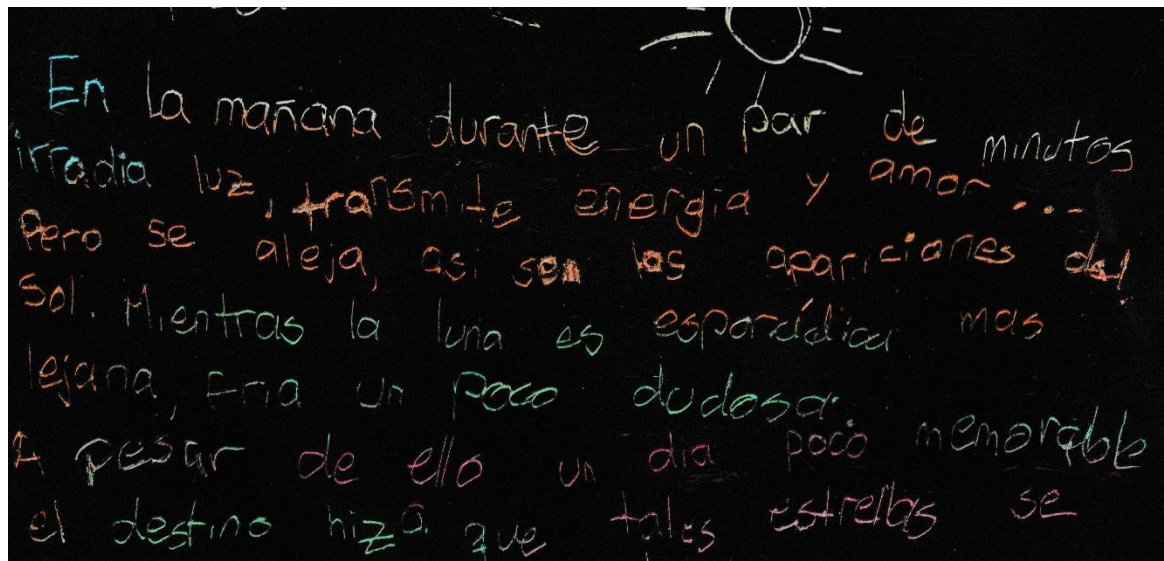 En la mañana durante un par de minutos
irradia luz, transmite energia y amor...
Pero se aleja, asi son las apariciones del
sol. Mientras la luna es esporádica mas
lejana, fria un poco dudosa.
A pesar de ello un dia poco memorable
el destino hizo que tales estrellas se